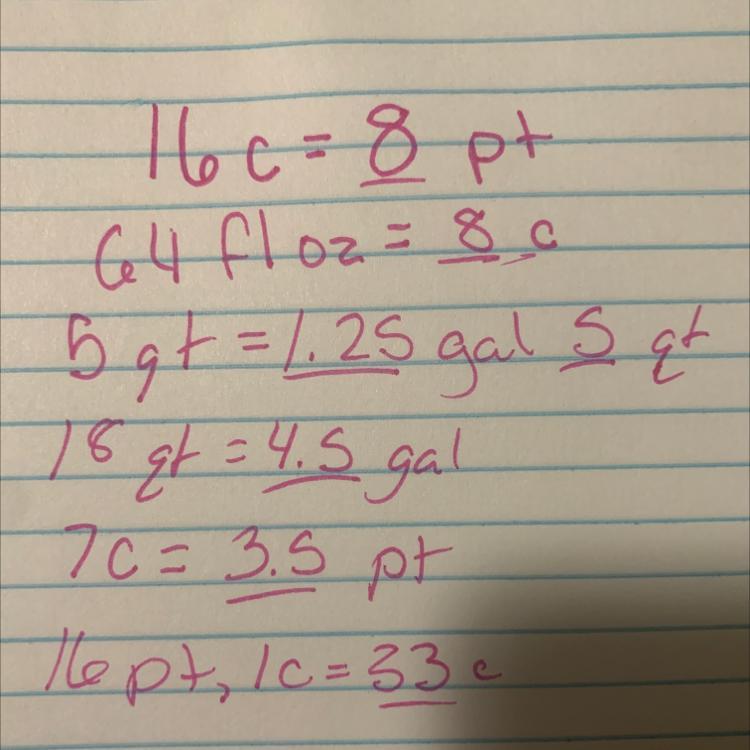 16 c = 8 pt
64 fl oz = 8 c
5 qt = 1.25 gal 5 qt
18 qt = 4.5 gal
7c = 3.5 pt
16 pt, 1c = 33 c